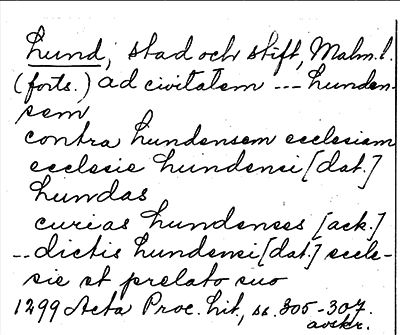 Lund, stad och stift, Malm. l.
(forts.) ad civitatem --- Lunden-
sem
contra Lundensem ecclesiam
ecclesie Lundensi [dat.]
Lundas
curias Lundenses [ack.]
-- dictis Lundensi [dat.] eccle-
sie et prelato suo
1299 Acta Proc. Lit., ss. 305-307.
avskr.